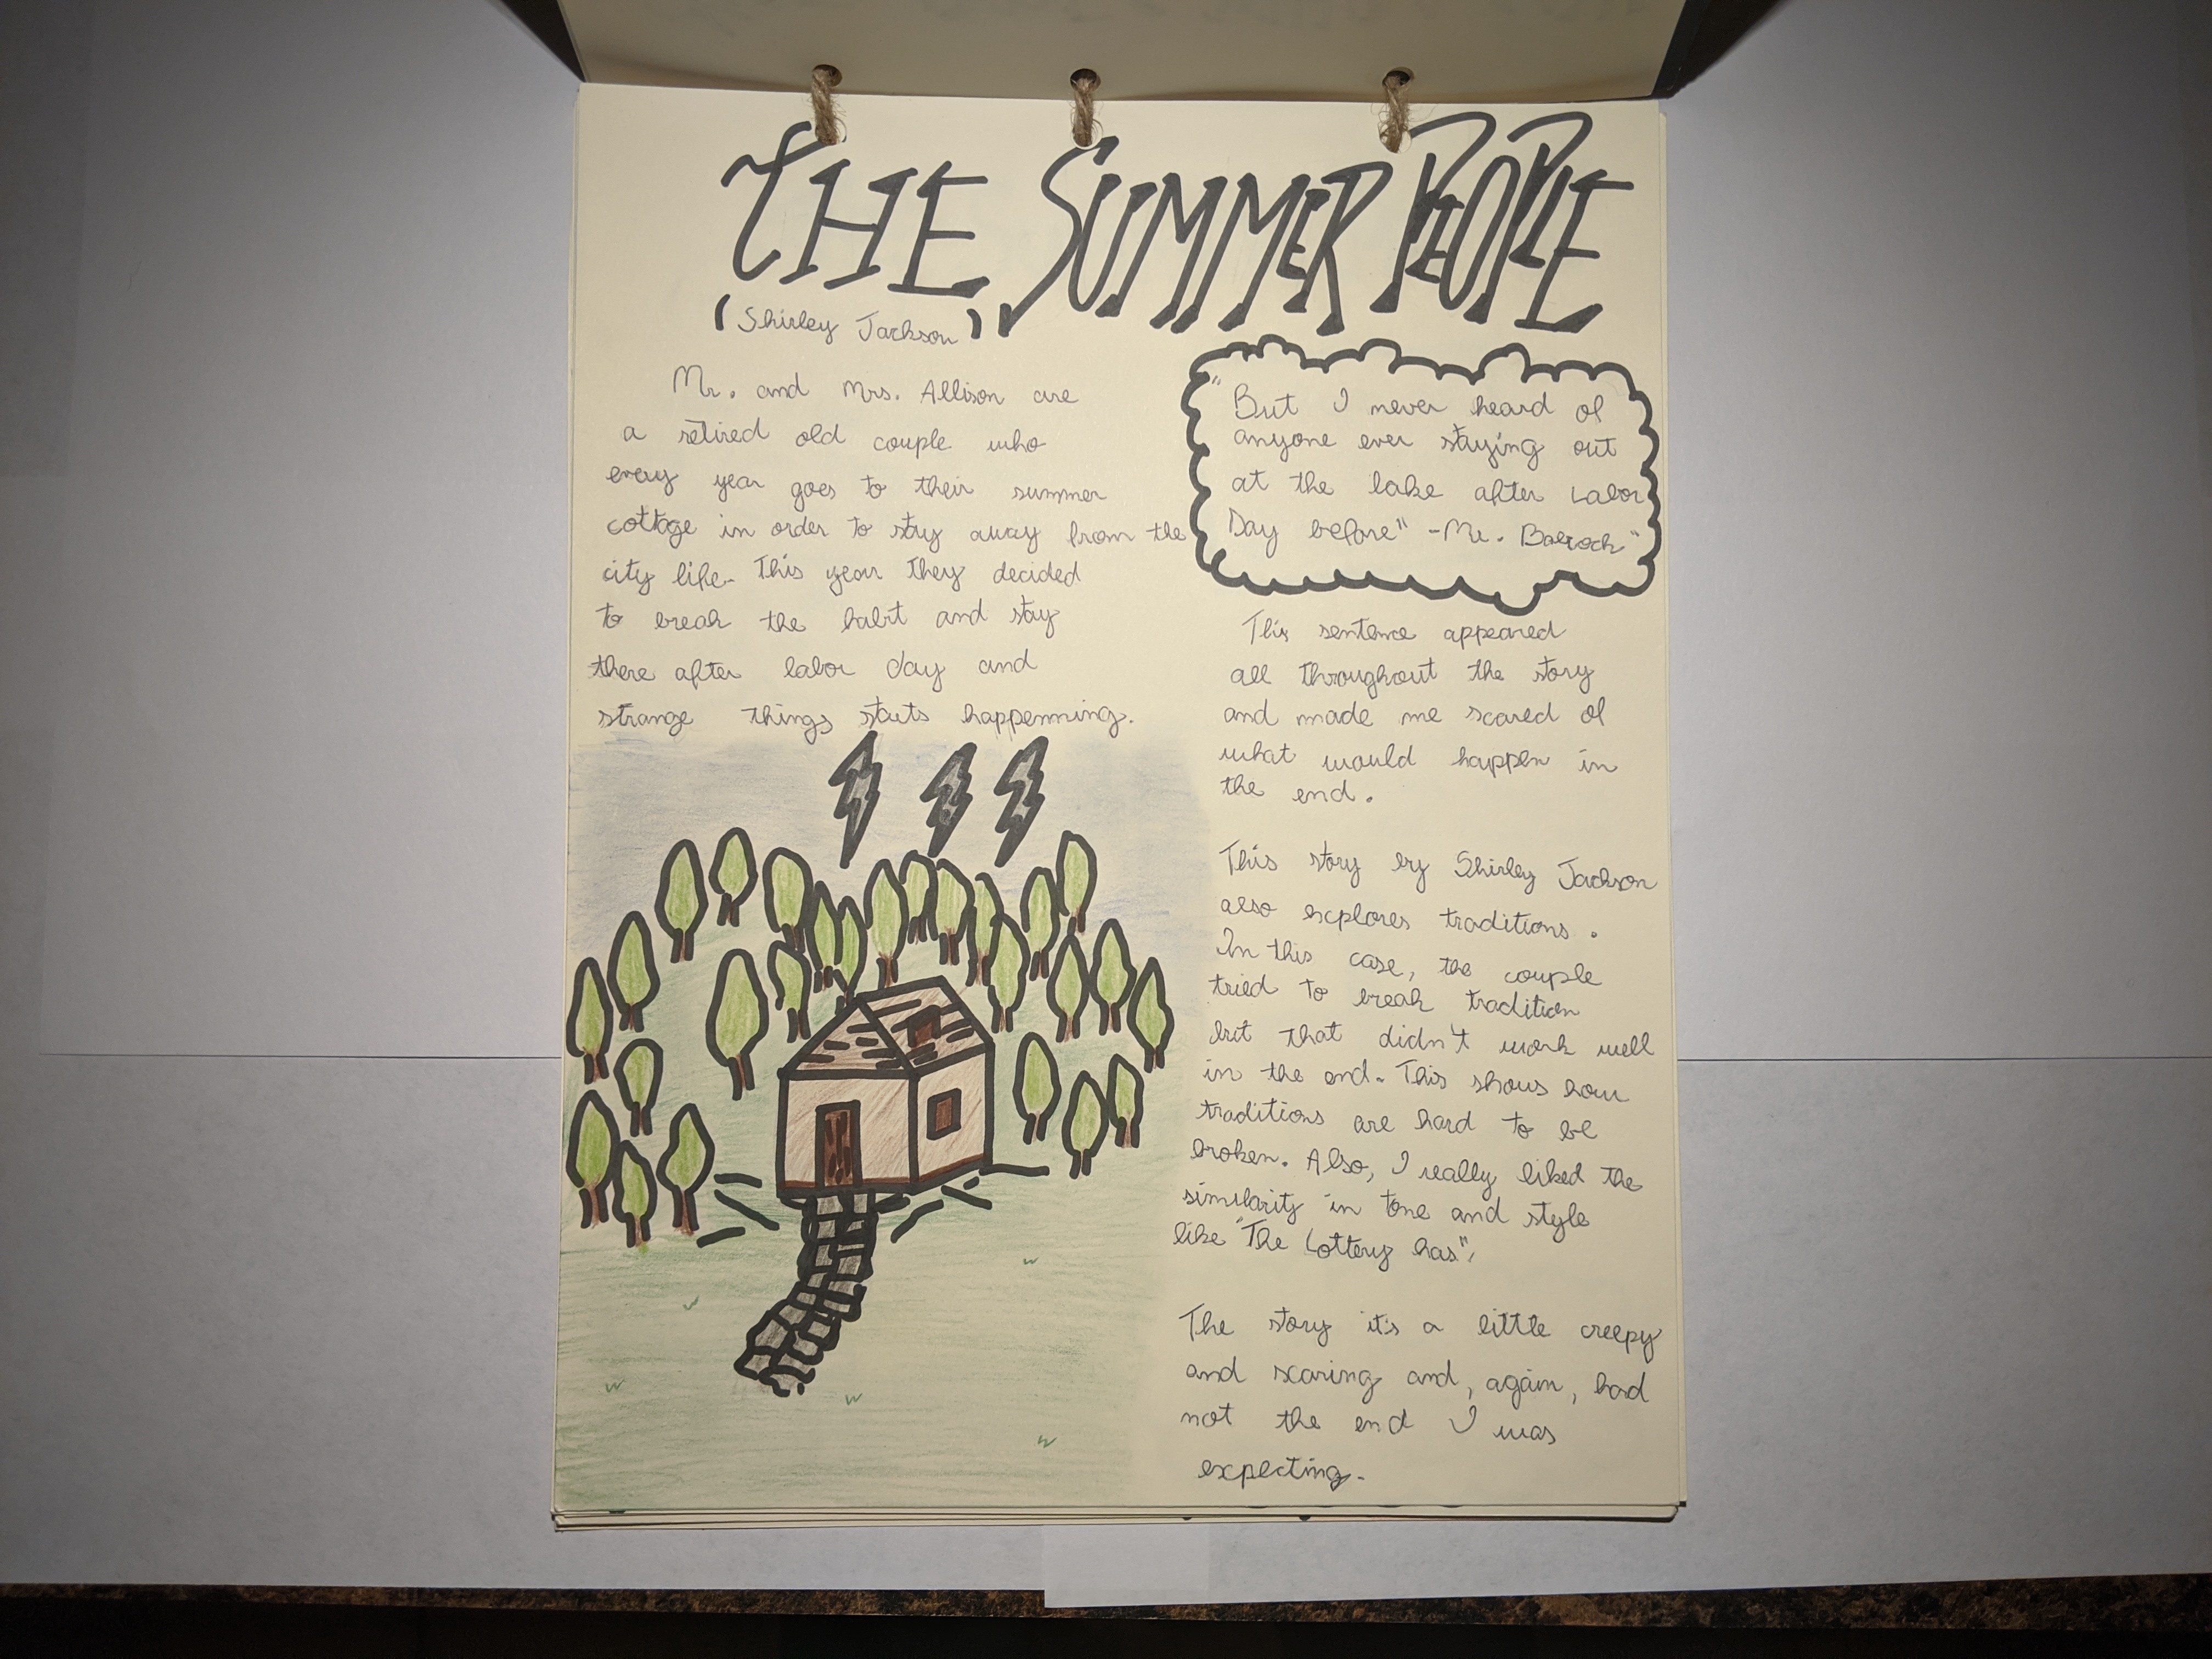 THE SUMMER PEOPLE
(Shirley Jackson)
Mr. and Mrs. Allison are
a retired old couple who
every year goes to their summer
cottage in order to stay away from the
city life. This year they decided
to break the habit and stay
there after labor day and
strange things starts happenning.
"But I never heard of
anyone ever staying out
at the lake after Labor
Day before" -Mr. "
This sentence appeared
all throughout the story
and made me scared of
what would happen in
the end.
This story by Shirley Jackson
also explores traditions.
In this case, the couple
tried to break tradition
but that didn't work well
in the end. This shows how
traditions are hard to be
broken. Also, I really liked the
similarity in tone and style
like "The Lottery has".
The story it's a little creepy
and scaring and, again, had
not the end I was
expecting.